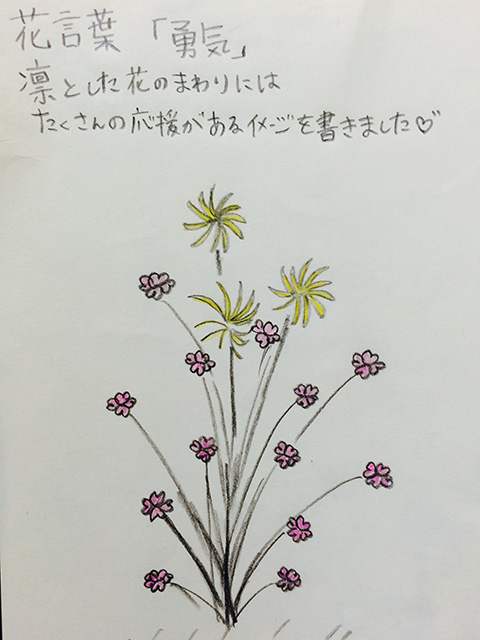 花言葉 「勇気」
凛とした花のまわりには
たくさんの応援があるイメージを書きました♡